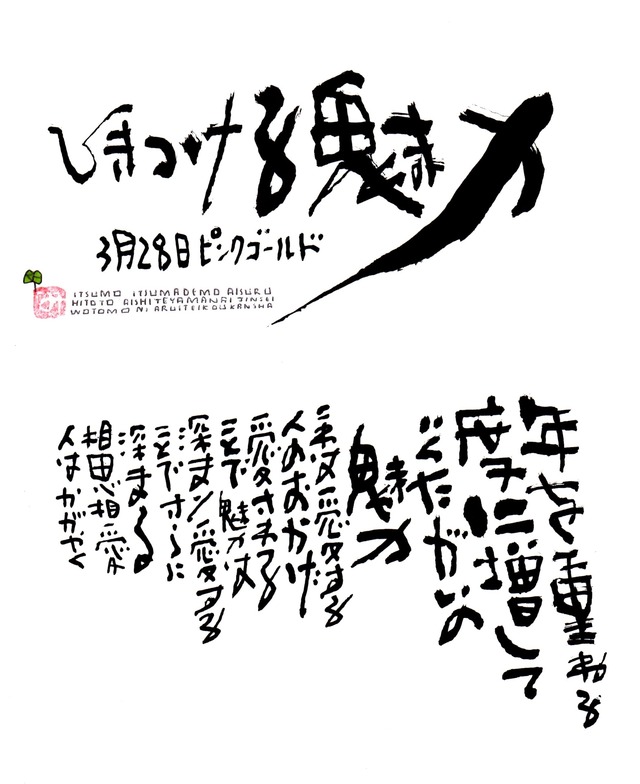 ひきつける魅力
3月28日ピンクゴールド
ITSUMO ITSUMADEMO AISURU
HITOTO AISHITEYAMANAI JINSEI
WOTOMO NI ARUITEIKOU KANSHA
年を重ねる
度に増して
いくたがいの
魅力
愛する
人のおかげ
愛される
ことで魅力は
深まり愛する
ことでさらに
深まる
相思相愛
人はかがやく